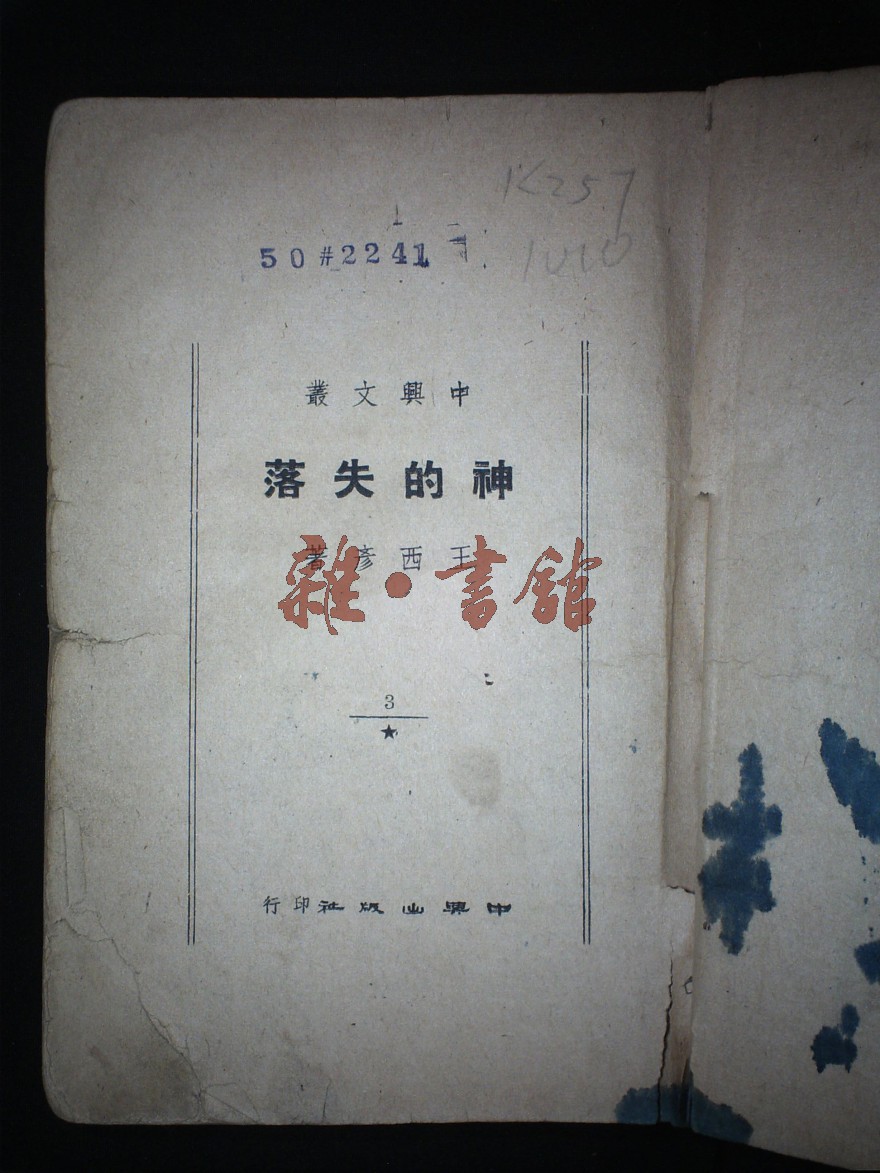 K257
50#2241
1010
中興文叢
神的失落
王西彥著
雜·書館
3
★
中興出版社印行